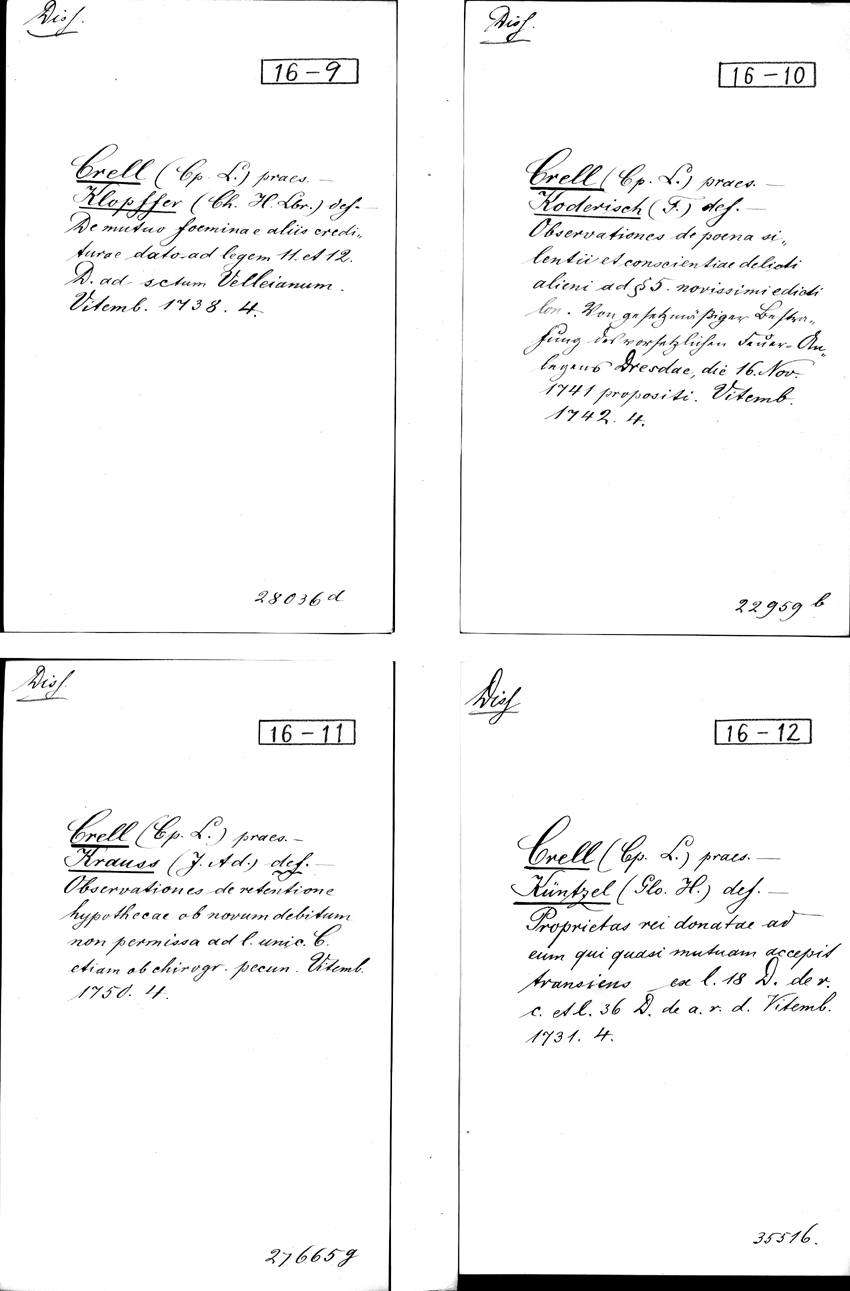 Diss.
16-9
Crell (Cp. L.) praes. —
Klopffer (Ch. H. Lbr.) def. —
De mutuo foeminae aliis credi„
turae dato ad legem 11. et 12.
D. ad sctum Velleianum.
Vitemb. 1738. 4.
28036 d
Diss.
16-10
Crell (Cp. L.) praes. —
Koderisch (F.) def. —
Observationes de poena si„
lentii et conscientiae delicti
alieni ad § 5. novissimi edicti
Von gesetzmäßiger Bestra„
fung des vorsetzlichen Feuer-An„
legens Dresdae, die 16. Nov.
1741 propositi. Vitemb.
1742. 4.
22959 b
Diss.
16-11
Crell (Cp. L.) praes. —
Krauss (J. Ad.) def. —
Observationes de retentione
hypothecae ob novum debitum
non permissa ad l. unic. C.
etiam ob chirogr. pecun. Vitemb.
1750. 4.
27665g
Diss
16-12
Crell (Cp. L.) praes. —
Küntzel (Glo. H.) def. —
Proprietas rei donatae ad
eum qui quasi mutuam accepit
transiens ex l. 18 D. de r.
c. et l. 36 D. de a. r. d. Vitemb.
1731. 4.
35516.